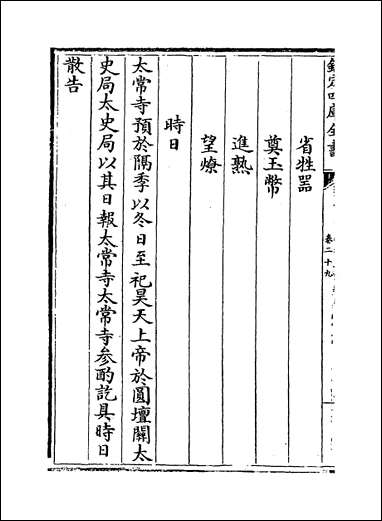 欽定四庫全書
卷二十九
省牲器
奠玉幣
進熟
望燎
時日
太常寺預於隔季以冬日至祀昊天上帝於圓壇關太
史局太史局以其日報太常寺太常寺参酌訖具時日
散告